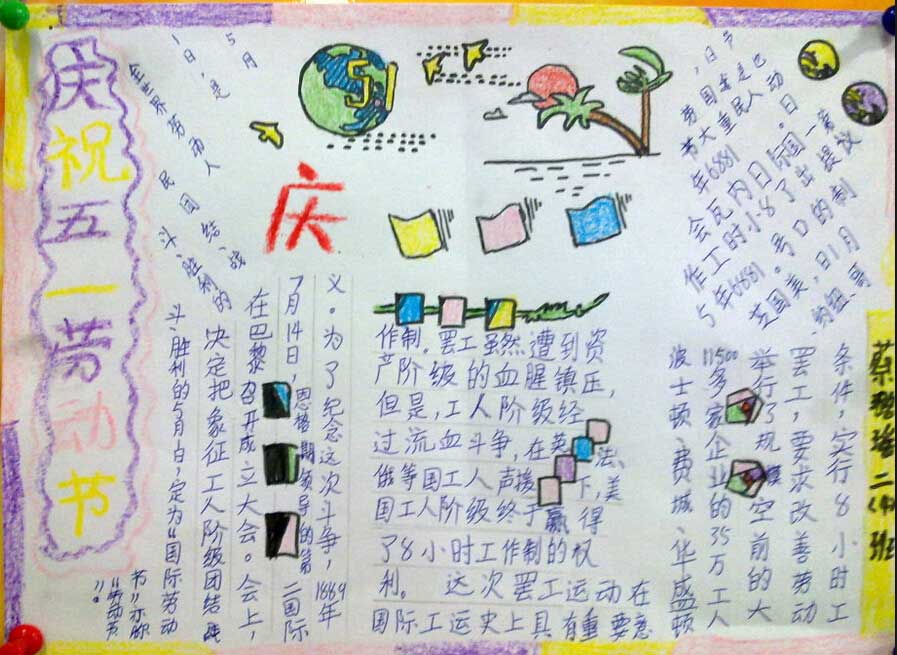 庆祝五一劳动节
5月
1日,是
全世界劳动人
民团结、战
斗、胜利的
51
庆
,日节
劳国者是也
节大重民人动
年6881。日
会瓦内日际国一第
作工时小8了出提议
5年6881。号口的制
芝国美,日1月
约纽、哥
条件,实行8小时工
罢工,要求改善劳动
举行了规模空前的大
11500多家企业的35万工人
波士顿、费城、华盛顿
作制。罢工虽然遭到资
产阶级的血腥镇压,
但是,工人阶级经
过流血斗争,在英、法、
俄等国工人声援下,美
国工人阶级终于赢得
了8小时工作制的权
利。 这次罢工运动在
国际工运史上具有重要意
义。为了纪念这次斗争,1889年
7月14日,恩格斯领导的第二国际
在巴黎召开成立大会。会上,
决定把象征工人阶级团结、战
斗、胜利的5月1日,定为“国际劳动
节”亦称
“劳动节
”。
蔡 二(4)班